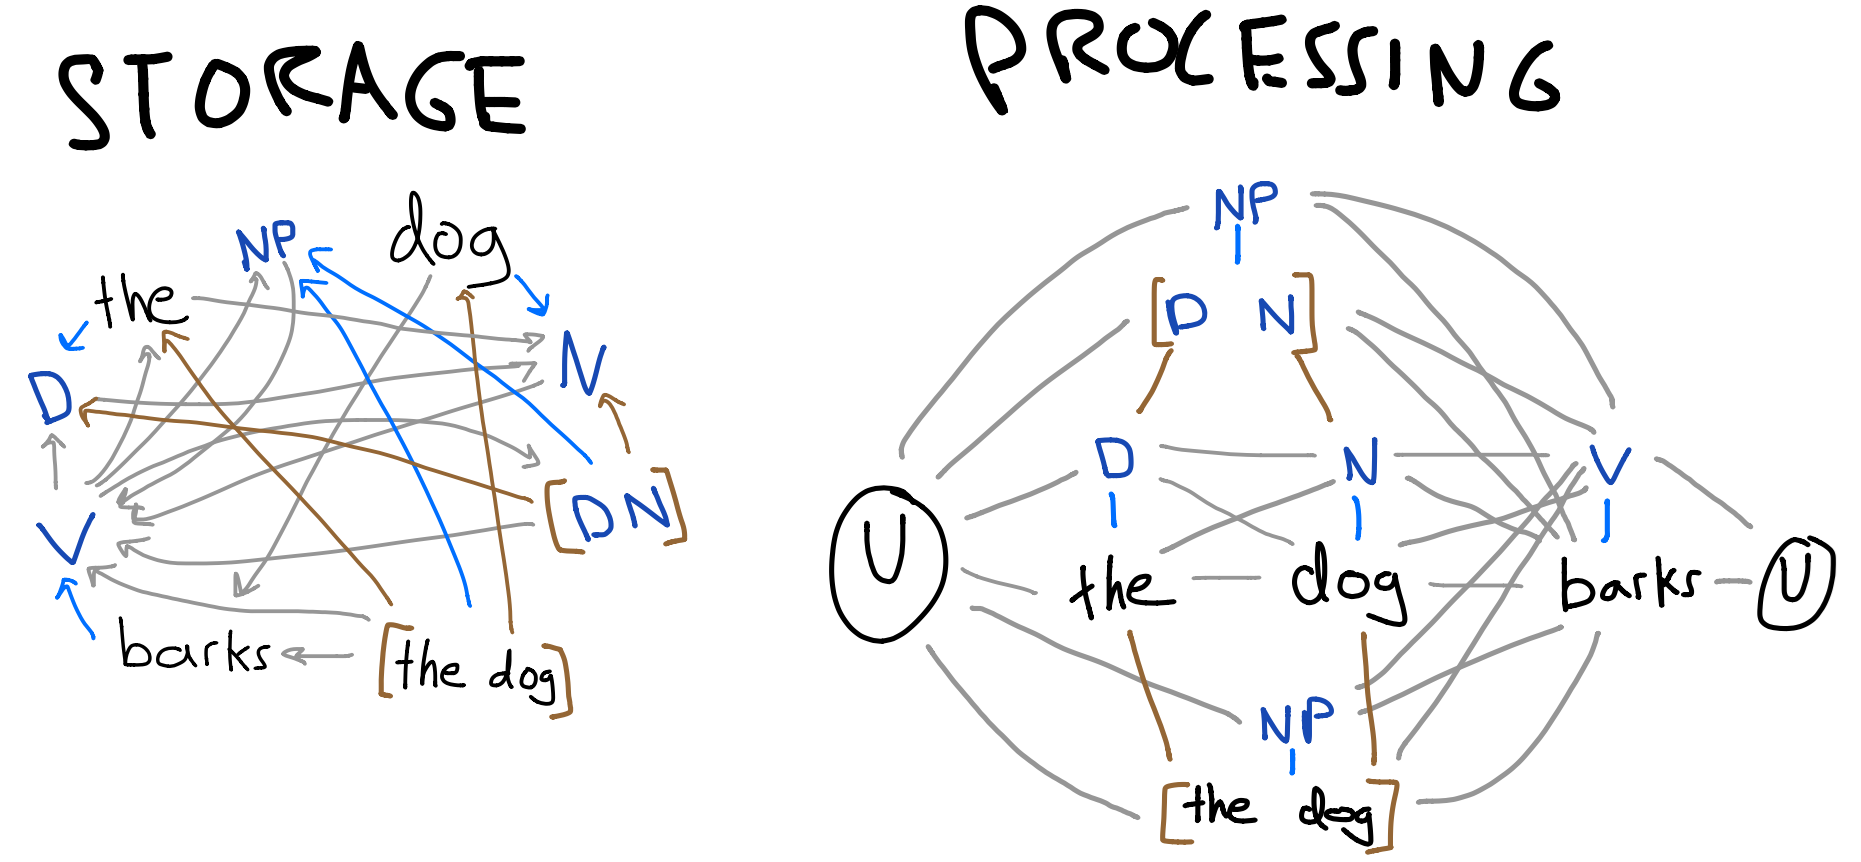 STORAGE
NP dog
the
D N
V [D N]
barks [the dog]
PROCESSING
NP
[D N]
D N V
U the dog barks U
NP
[the dog]